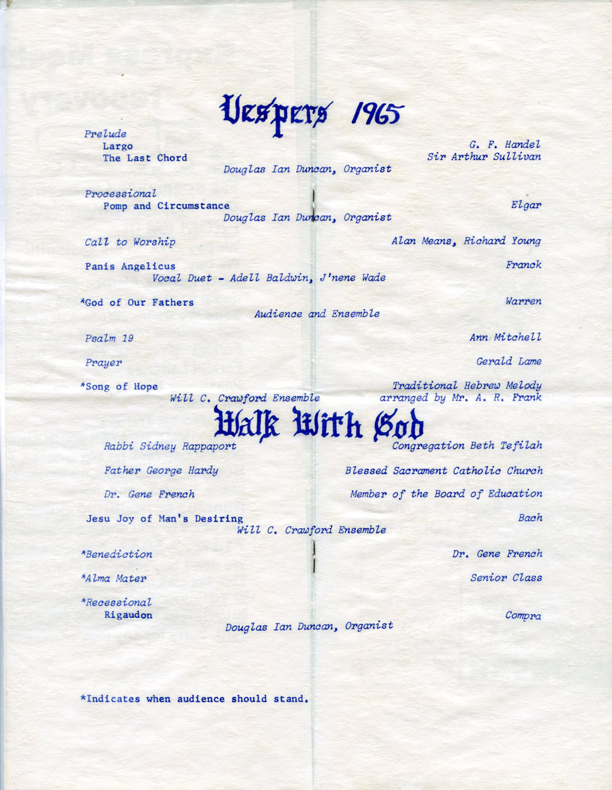 Vespers 1965
Prelude
Largo G. F. Handel
The Last Chord Sir Arthur Sullivan
Douglas Ian Duncan, Organist
Processional
Pomp and Circumstance Elgar
Douglas Ian Duncan, Organist
Call to Worship Alan Means, Richard Young
Panis Angelicus Franck
Vocal Duet - Adell Baldwin, J'nene Wade
*God of Our Fathers Warren
Audience and Ensemble
Psalm 19 Ann Mitchell
Prayer Gerald Lame
*Song of Hope Traditional Hebrew Melody
Will C. Crawford Ensemble arranged by Mr. A. R. Frank
Walk With God
Rabbi Sidney Rappaport Congregation Beth Tefilah
Father George Hardy Blessed Sacrament Catholic Church
Dr. Gene French Member of the Board of Education
Jesu Joy of Man's Desiring Bach
Will C. Crawford Ensemble
*Benediction Dr. Gene French
*Alma Mater Senior Class
*Recessional
Rigaudon Compra
Douglas Ian Duncan, Organist
*Indicates when audience should stand.